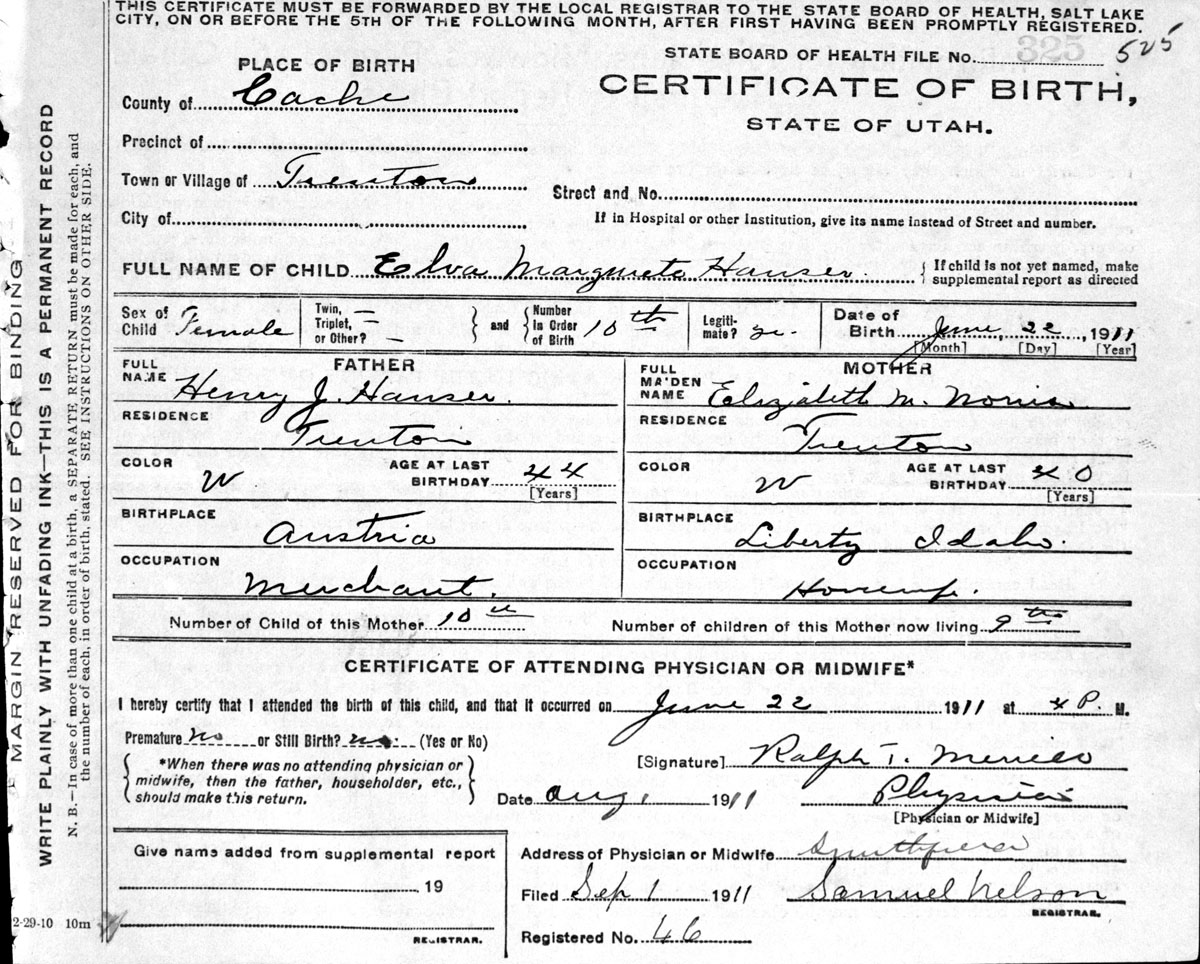 THIS CERTIFICATE MUST BE FORWARDED BY THE LOCAL REGISTRAR TO THE STATE BOARD OF HEALTH, SALT LAKE
CITY, ON OR BEFORE THE 5TH OF THE FOLLOWING MONTH, AFTER FIRST HAVING BEEN PROMPTLY REGISTERED.
STATE BOARD OF HEALTH FILE No. 325 525
PLACE OF BIRTH
CERTIFICATE OF BIRTH,
STATE OF UTAH.
County of Cache
Precinct of
Town or Village of Trenton
Street and No.
City of
If in Hospital or other Institution, give its name instead of Street and number.
FULL NAME OF CHILD Elva Margureta Hauser. If child is not yet named, make supplemental report as directed
Sex of Child Female Twin, Triplet, or Other? — and Number in Order of Birth 10th Legiti-mate? Date of Birth June, 22, 1911
[Month] [Day] [Year]
FATHER
MOTHER
FULL NAME Henry J. Hauser.
FULL MAIDEN NAME Elizabeth M.
RESIDENCE Trenton
RESIDENCE Trenton
COLOR W AGE AT LAST BIRTHDAY 44 [Years]
COLOR W AGE AT LAST BIRTHDAY 40 [Years]
BIRTHPLACE Austria
BIRTHPLACE Liberty Idaho.
OCCUPATION Merchant.
OCCUPATION Housewife.
Number of Child of this Mother 10th Number of children of this Mother now living 9th
CERTIFICATE OF ATTENDING PHYSICIAN OR MIDWIFE*
I hereby certify that I attended the birth of this child, and that it occurred on June 22 1911 at 4 P. M.
Premature no or Still Birth? no (Yes or No)
*When there was no attending physician or
midwife, then the father, householder, etc.,
should make this return.
[Signature] Ralph T. Merrill
Date Aug 1 1911 Physician
[Physician or Midwife]
Give name added from supplemental report
19
REGISTRAR.
Address of Physician or Midwife
Filed Sep 1 1911 Samuel Nelson
REGISTRAR.
Registered No. 46
2-29-10 10m
MARGIN RESERVED FOR BINDING
WRITE PLAINLY WITH UNFADING INK—THIS IS A PERMANENT RECORD
N. B.—In case of more than one child at a birth, a SEPARATE RETURN must be made for each, and
the number of each, in order of birth, stated. SEE INSTRUCTIONS ON OTHER SIDE.